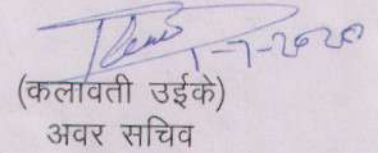 1-7-2020
(कलावती उईके)
अवर सचिव